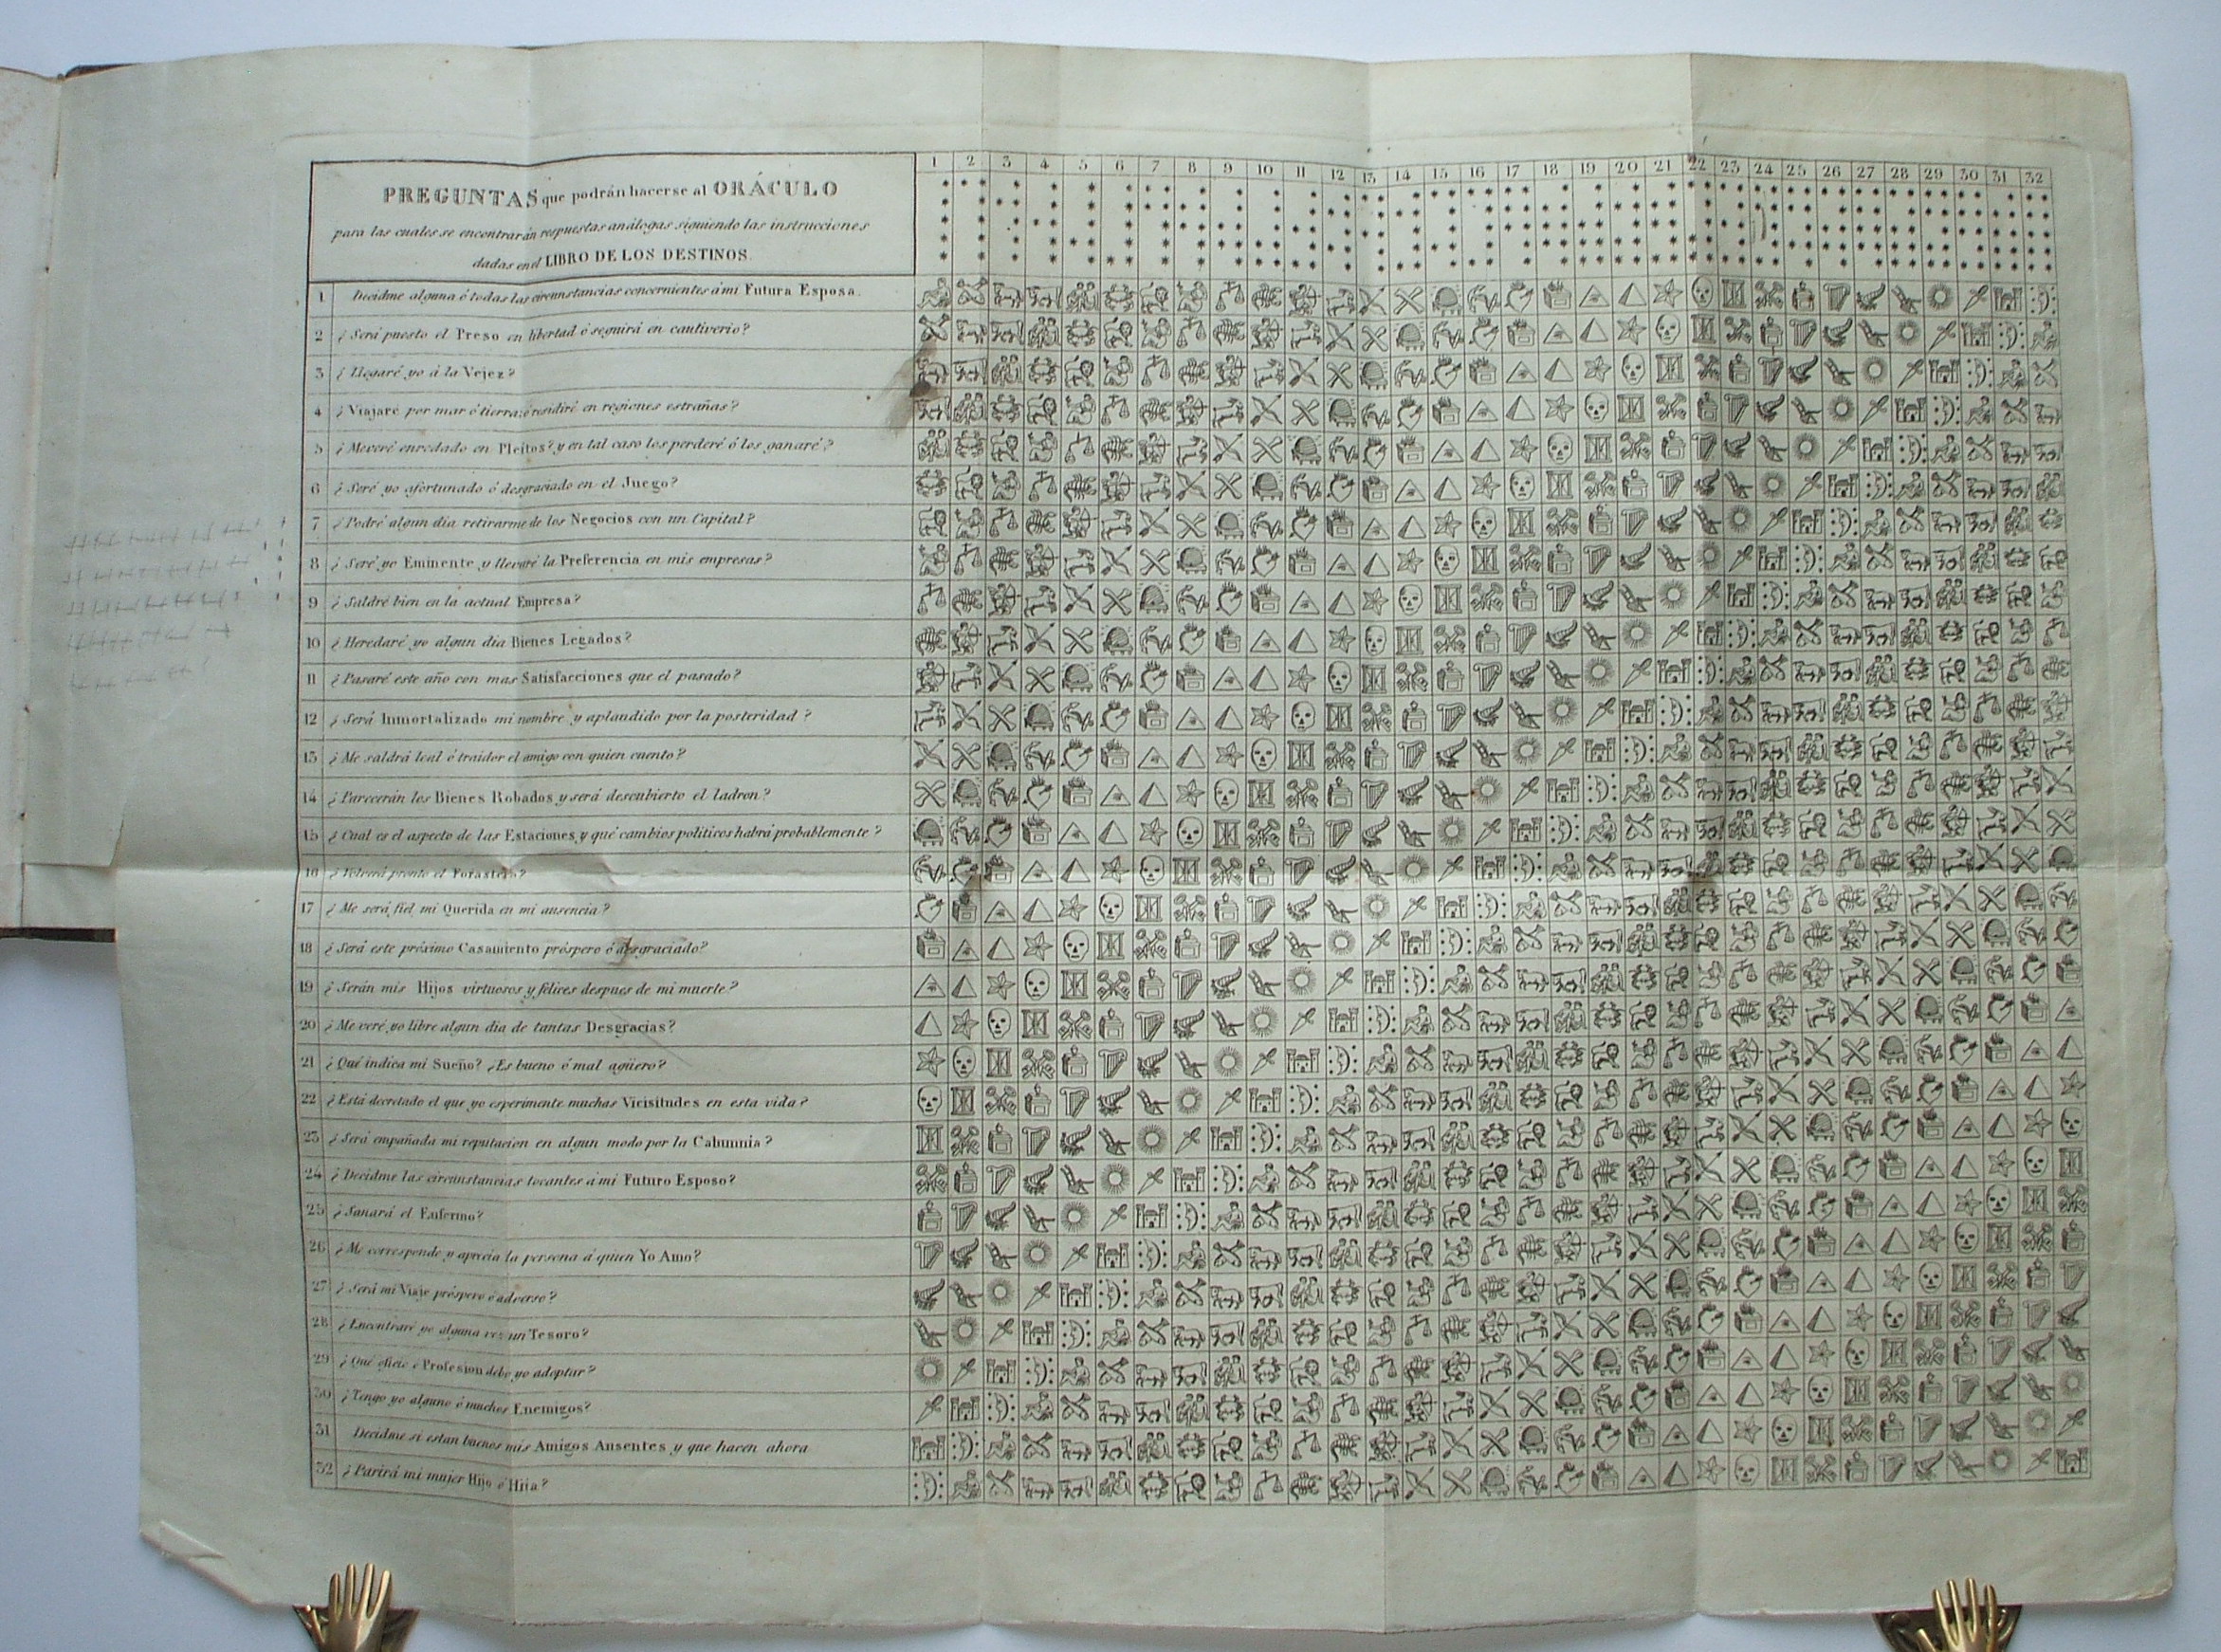 PREGUNTAS que podrán hacerse al ORÁCULO
para las cuales se encontrarán respuestas análogas siguiendo las instrucciones
dadas en el LIBRO DE LOS DESTINOS.
1 2 3 4 5 6 7 8 9 10 11 12 13 14 15 16 17 18 19 20 21 22 23 24 25 26 27 28 29 30 31 32
1 Decidme alguna ó todas las circunstancias concernientes á mi Futura Esposa.
2 ¿Será puesto el Preso en libertad ó seguirá en cautiverio?
3 ¿Llegaré yo á la Vejez?
4 ¿Viajaré por mar ó tierra; ó residiré en regiones estrañas?
5 ¿Me veré enredado en Pleitos? y en tal caso los perderé ó los ganaré?
6 ¿Seré yo afortunado ó desgraciado en el Juego?
7 ¿Podré algun dia retirarme de los Negocios con un Capital?
8 ¿Seré yo Eminente y llevaré la Preferencia en mis empresas?
9 ¿Saldré bien en la actual Empresa?
10 ¿Heredaré yo algun dia Bienes Legados?
11 ¿Pasaré este año con mas Satisfacciones que el pasado?
12 ¿Será Inmortalizado mi nombre y aplaudido por la posteridad?
13 ¿Me saldrá leal ó traidor el amigo con quien cuento?
14 ¿Parecerán los Bienes Robados y será descubierto el ladron?
15 ¿Cual es el aspecto de las Estaciones, y qué cambios politicos habrá probablemente?
16 ¿Volverá pronto el Forastero?
17 ¿Me será fiel mi Querida en mi ausencia?
18 ¿Será este próximo Casamiento próspero ó desgraciado?
19 ¿Serán mis Hijos virtuosos y felices despues de mi muerte?
20 ¿Me veré yo libre algun dia de tantas Desgracias?
21 ¿Qué indica mi Sueño? ¿Es bueno ó mal agüero?
22 ¿Está decretado el que yo esperimente muchas Vicisitudes en esta vida?
23 ¿Será empañada mi reputacion en algun modo por la Calumnia?
24 ¿Decidme las circunstancias tocantes á mi Futuro Esposo?
25 ¿Sanará el Enfermo?
26 ¿Me corresponde y aprecia la persona á quien Yo Amo?
27 ¿Será mi Viaje próspero ó adverso?
28 ¿Encontraré yo alguna vez un Tesoro?
29 ¿Qué oficio ó Profesion debo yo adoptar?
30 ¿Tengo yo alguno ó muchos Enemigos?
31 Decidme si estan buenos mis Amigos Ausentes y que hacen ahora
32 ¿Parirá mi mujer Hijo ó Hija?